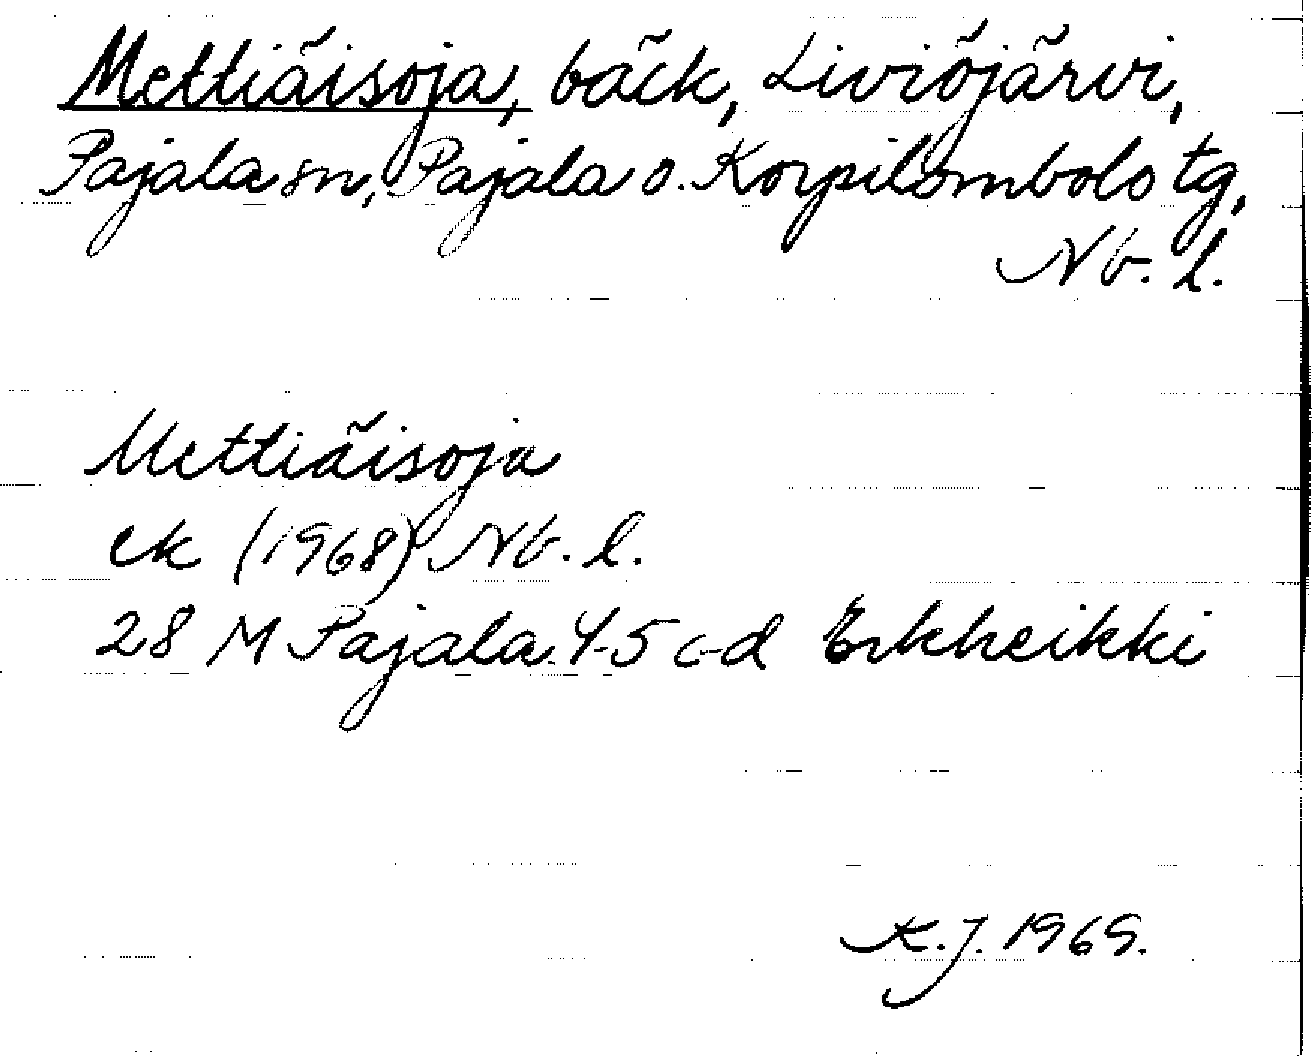 Mettiäisoja, bäck, Liviöjärvi,
Pajala sn, Pajala o. Korpilombolo tg,
Nb. l.
Mettiäisoja
ek (1968) Nb. l.
28 M Pajala. 4-5 c-d Erkheikki
K.J. 1969.